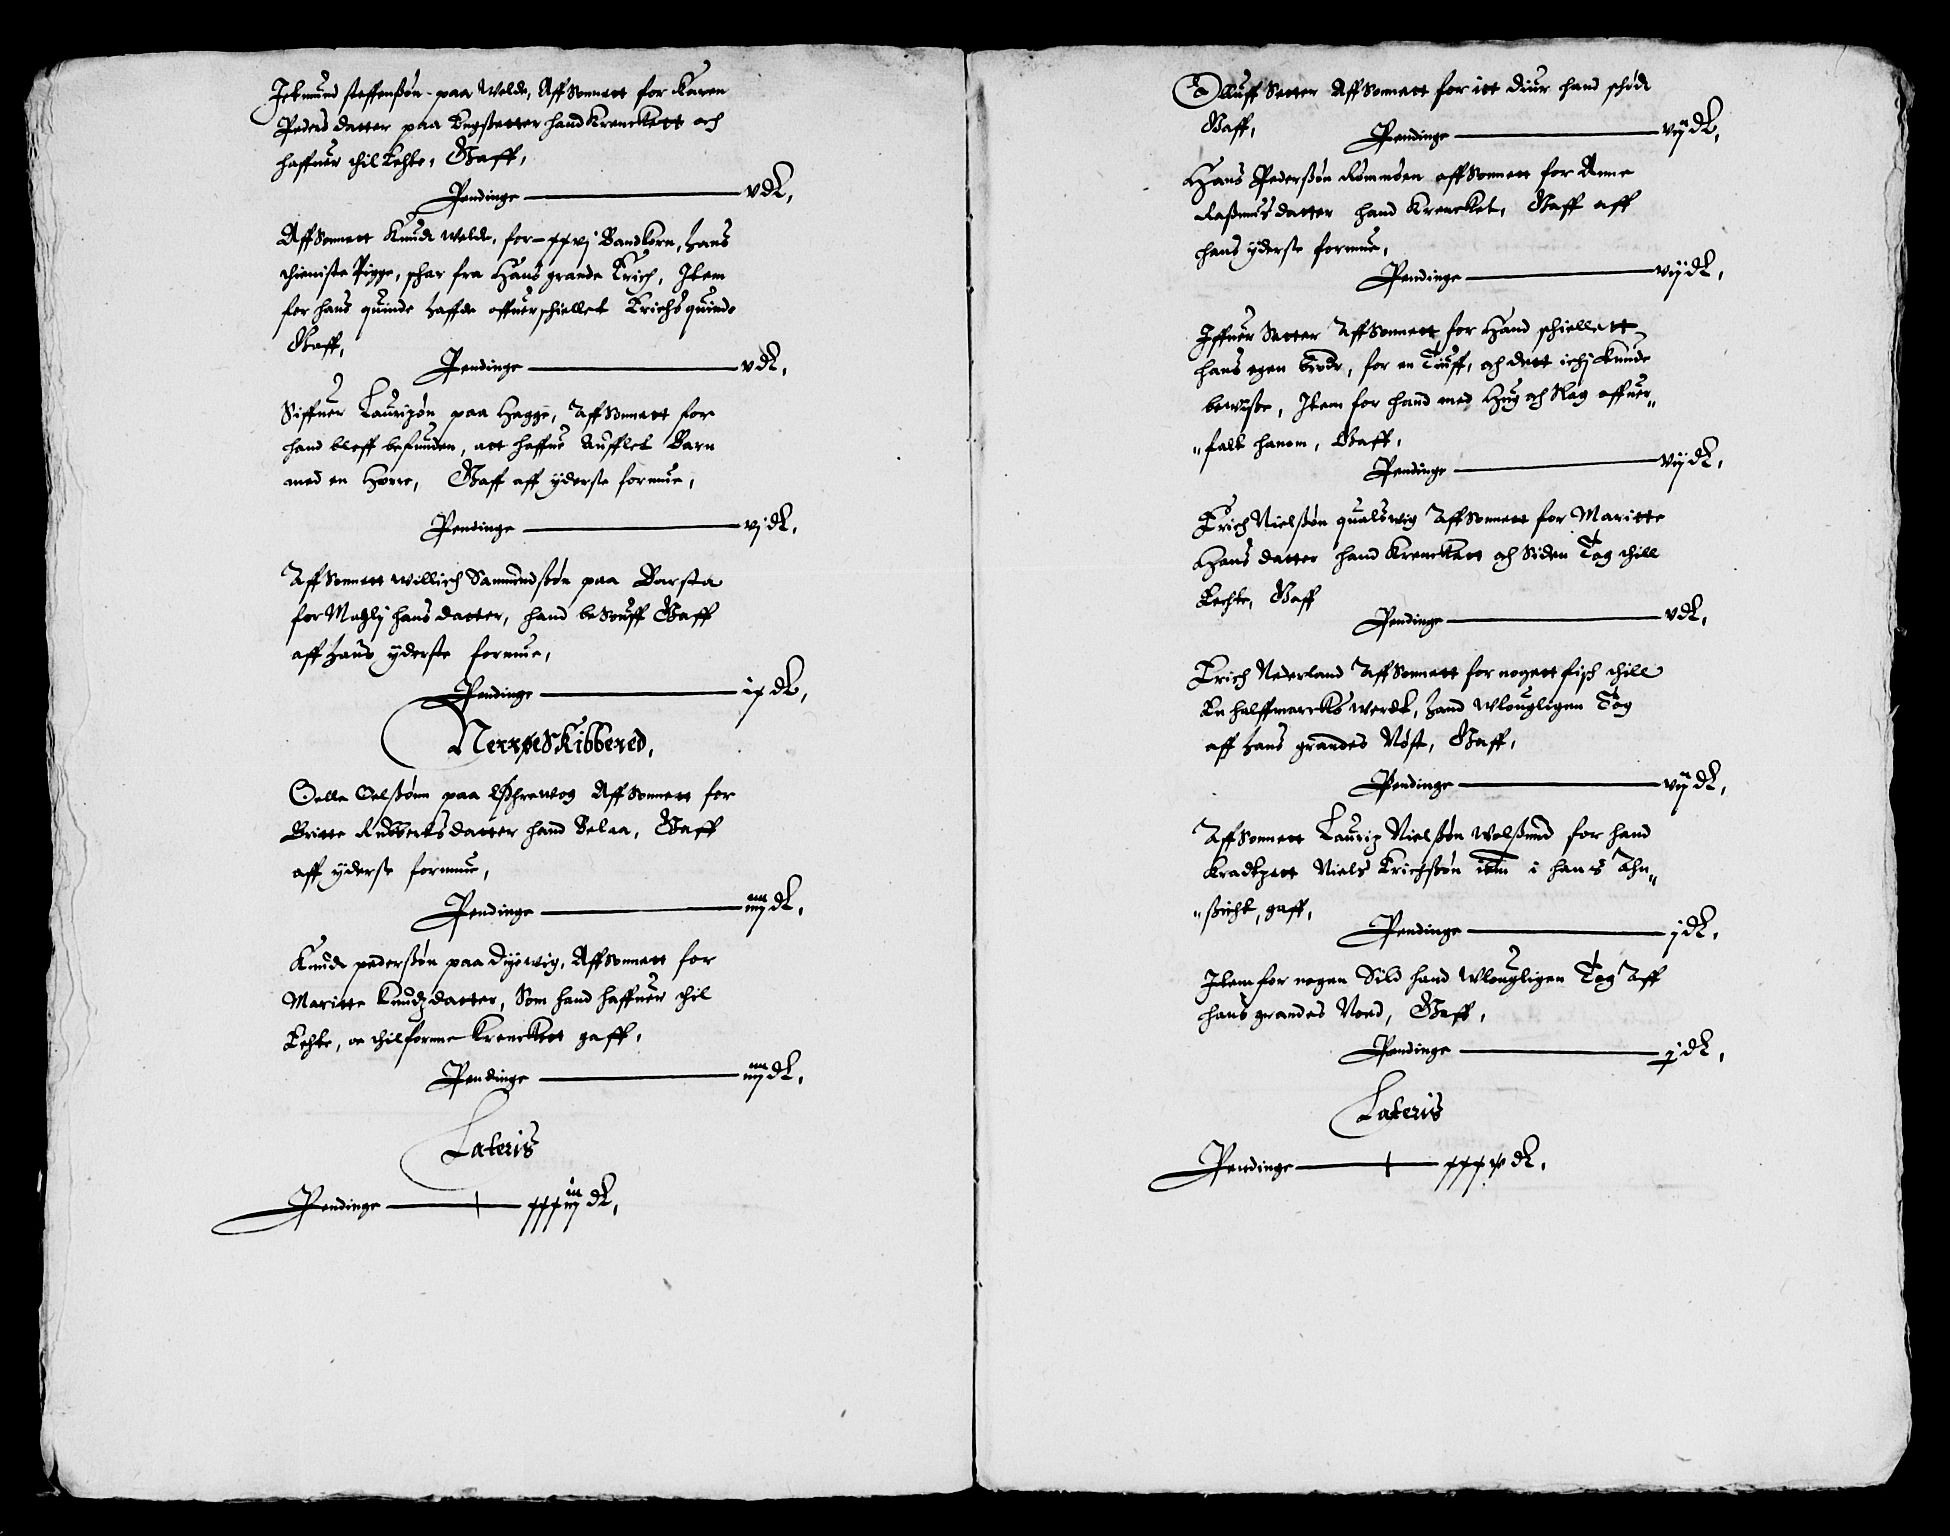 Jetmund steffensøn paa Welde, Aff Sonnett for Karen
Peders datter paa Engssetter hand Krenckett och
haffuer thil Echte, Gaff,
Pendinge v dl,
Aff Sonnett Knud Welde, for xxvj Bandkorn, hans
thieniste Pigge, schar fra Hans grande Erich, Item
for hans quinde haffde offuerschiellet Erichs quinde
Gaff,
Pendinge v dl,
Siffuer Lauritzøn paa Hagge, Aff Sonnett for
hand bleff befunden, att haffue Aufflet Barn
med en Horre, Gaff aff yderste formue,
Pendinge vj dl,
Aff Sonnett Willich Samundssøn paa Barsta
for Magly hans datter, hand besouff Gaff
aff hans yderste formue,
Pendinge ix dl,
Nerrøe Skibbered,
Oelle Oelssønn paa Wog Aff Sonnett for
Britte Rubberts datter hand Belaa, Gaff
aff yderste formue,
Pendinge iiij dl,
Knud pederssøn paa Dyewig, Aff Sonnett for
Maritte Knudtz datter, Som hand haffuer thil
Echte, oc thilforne Krenckett gaff,
Pendinge iiij dl,
Lateris
Pendinge xxxiij dl,
Olluff Setter Aff Sonnett for itt diur hand schød
Gaff, Pendinge vij dl,
Hans Pederssøn Rømmøen aff Sonnett for Anne
Rassmus datter hand Krencket, Gaff aff
hans yderste formue,
Pendinge vij dl,
Iffuer Setter Aff Sonnett for Hand schiellett
hans egen broder, for en Tiuff, och dett icke kunde
bewysse, Item for hand med Hug och Slag offuer„
„falt hanom, Gaff,
Pendinge vij dl,
Erich Nielssøn qualswig Aff Sonnett for Maritte
Hans datter hand Krenckett och Siden Tog thill
Echte, Gaff
Pendinge v dl,
Erich Nederland Aff Sonnett for nogett fisch thill
En halff marcks werdt, hand Wlougligen Tog
aff hans grandes Nøst, Gaff,
Pendinge vij dl,
Aff Sonnett Lauritz Nielssøn Wolssund for hand
Kradtzett Niels Erichssøn ibm i hans Ahn„
„ssicht, gaff,
Pendinge j dl,
Item for nogen Sild hand Wlougligen Tog Aff
hans grandes Noed, Gaff,
Pendinge j dl,
Lateris
Pendinge xxxv dl,